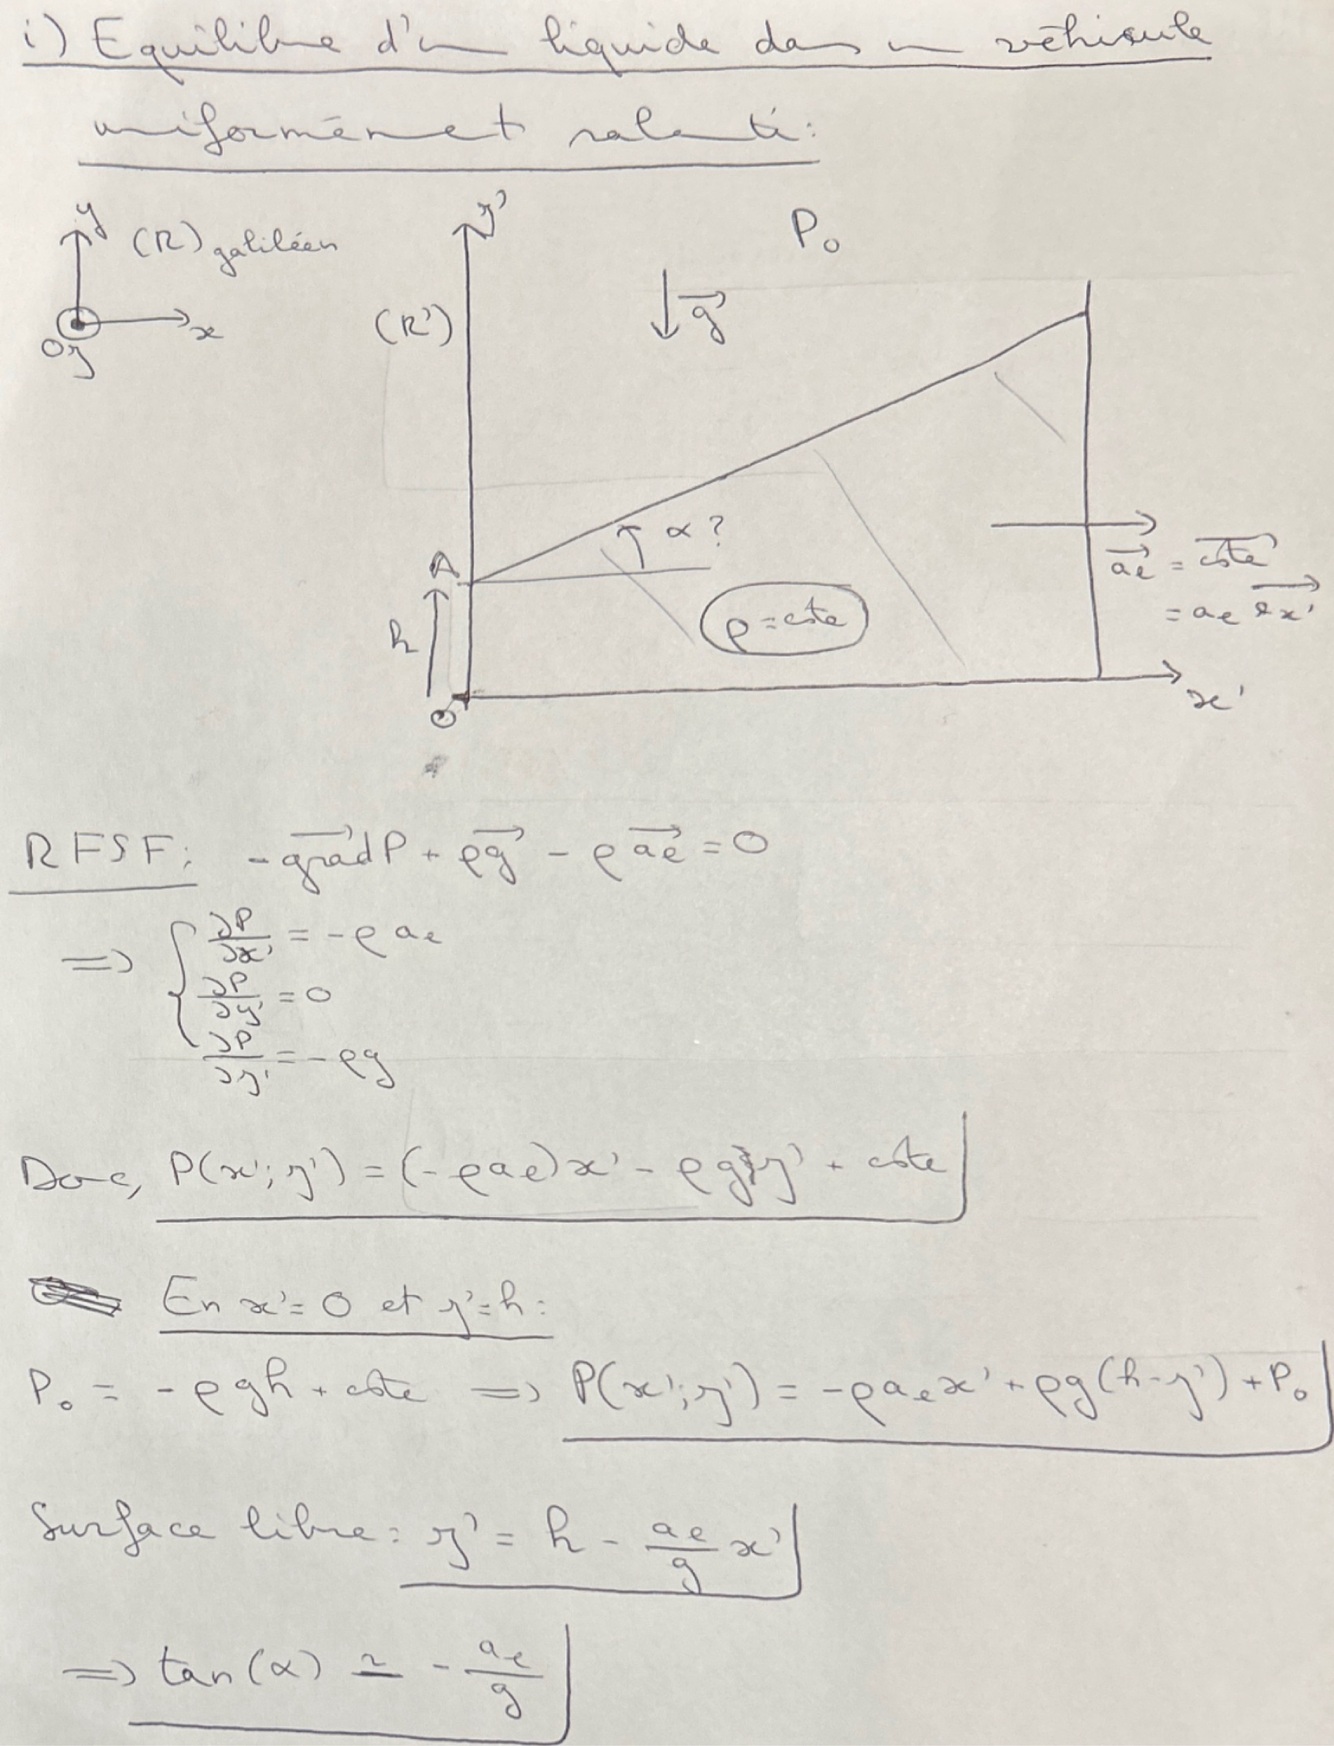 i) Equilibre d'un liquide dans un véhicule
uniformément ralenti:
y
(R) galiléen
x
Oz
z'
(R')
P₀
g⃗
A
α ?
h
ρ = cste
a⃗e = cste⃗
= ae e⃗x'
O
x'
RFSF: -grad⃗ P + ρg⃗ - ρa⃗e = 0
=> { ∂P/∂x' = -ρ ae
∂P/∂y' = 0
∂P/∂z' = -ρg
Donc, P(x'; z') = (-ρae)x' - ρg z' + cste
En x'= 0 et z'= h :
P₀ = -ρgh + cste => P(x'; z') = -ρae x' + ρg(h-z') + P₀
Surface libre : z' = h - ae/g x'
=> tan(α) ≃ - ae/g